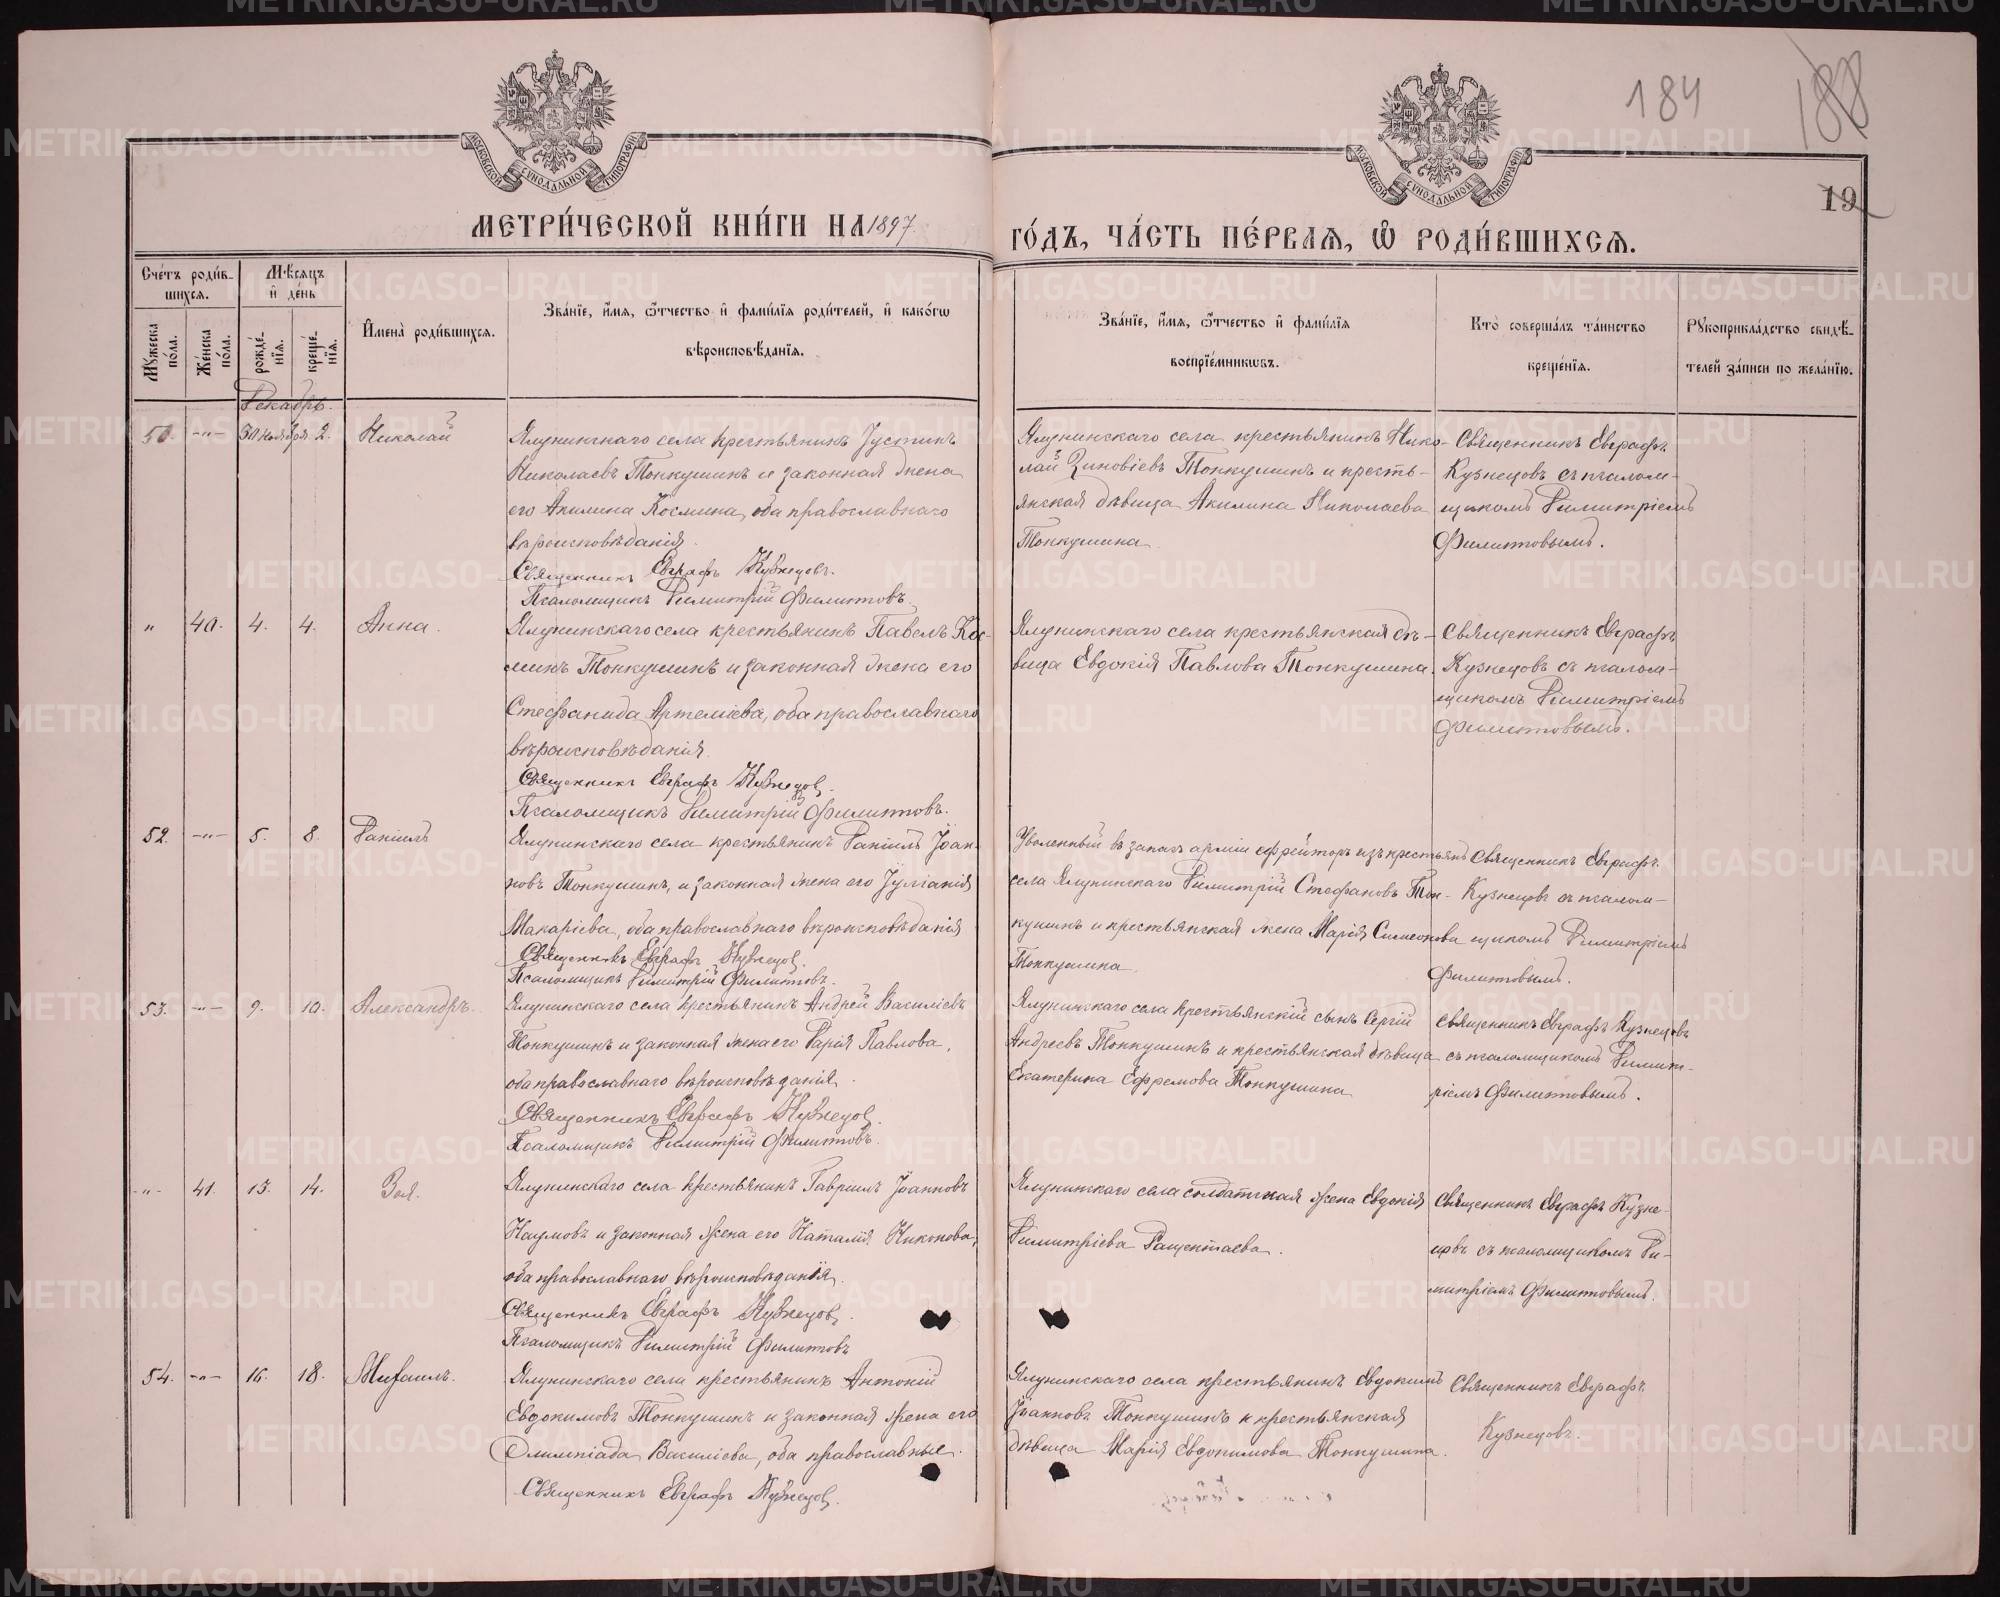 184
188
19
МОСКОВСКОЙ СѴНОДАЛЬНОЙ ТИПОГРАФІИ
МОСКОВСКОЙ СѴНОДАЛЬНОЙ ТИПОГРАФІИ
МЕТРИ́ЧЕСКОЙ КНИ́ГИ НА 1897
ГО́ДЪ, ЧА́СТЬ ПЕ́РВАѦ, Ѽ РОДИ́ВШИХСѦ.
Сче́тъ роди́в-
шихсѧ.
Мѣ́сѧцъ
и҆ де́нь
Мꙋ́жеска по́ла.
Же́нска по́ла.
рожде́-
нїѧ.
креще́-
нїѧ.
И҆мена̀ роди́вшихсѧ.
Зва́нїе, и҆́мѧ, ѻ҆́тчество и҆ фами́лїѧ роди́телей, и҆ како́гѡ
вѣроисповѣ́данїѧ.
Зва́нїе, и҆́мѧ, ѻ҆́тчество и҆ фами́лїѧ
воспрїе́мникѡвъ.
Кто̀ соверша́лъ та́инство
креще́нїѧ.
Рꙋкоприкла́дство свидѣ́-
телей за́писи по жела́нїю.
Декабрь.
50. -"- 30 Ноября 2. Николай
Ялунинскаго села крестьянинъ Іустинъ
Николаевъ Тонкушинъ и законная жена
его Акилина Космина, оба православнаго
вѣроисповѣданія.
Священникъ Евграфъ Кузнецовъ.
Псаломщикъ Димитрій Филитовъ.
Ялунинскаго села крестьянинъ Нико-
лай Зиновіевъ Тонкушинъ и кресть-
янская дѣвица Акилина Николаева
Тонкушина
Священникъ Евграфъ
Кузнецовъ съ псалом-
щикомъ Димитріемъ
Филитовымъ.
" 40. 4. 4. Анна.
Ялунинскаго села крестьянинъ Павелъ Кос-
минъ Тонкушинъ и законная жена его
Стефанида Артеміева, оба православнаго
вѣроисповѣданія.
Священникъ Евграфъ Кузнецовъ.
Псаломщикъ Димитрій Филитовъ.
Ялунинскаго села крестьянская дѣ-
вица Евдокія Павлова Тонкушина.
Священникъ Евграфъ
Кузнецовъ съ псалом-
щикомъ Димитріемъ
Филитовымъ.
52. -"- 5. 8. Даніилъ
Ялунинскаго села крестьянинъ Даніилъ Іоан-
новъ Тонкушинъ, и законная жена его Іуліанія
Макаріева, оба православнаго вѣроисповѣданія
Священникъ Евграфъ Кузнецовъ.
Псаломщикъ Димитрій Филитовъ.
Уволенный въ запасъ арміи ефрейторъ изъ крестьянъ
села Ялунинскаго Димитрій Стефановъ Тон-
кушинъ и крестьянская жена Марія Симеонова
Тонкушина
Священникъ Евграфъ
Кузнецовъ съ псалом-
щикомъ Димитріемъ
Филитовымъ.
53. -"- 9. 10. Александръ.
Ялунинскаго села крестьянинъ Андрей Василіевъ
Тонкушинъ и законная жена его Дарія Павлова,
оба православнаго вѣроисповѣданія.
Священникъ Евграфъ Кузнецовъ.
Псаломщикъ Димитрій Филитовъ.
Ялунинскаго села крестьянскій сынъ Сергій
Андреевъ Тонкушинъ и крестьянская дѣвица
Екатерина Ефремова Тонкушина
Священникъ Евграфъ Кузнецовъ
съ псаломщикомъ Димит-
ріемъ Филитовымъ.
-"- 41. 13. 14. Зоя.
Ялунинскаго села крестьянинъ Гавріилъ Іоанновъ
Наумовъ и законная жена его Наталія Никонова,
оба православнаго вѣроисповѣданія.
Священникъ Евграфъ Кузнецовъ.
Псаломщикъ Димитрій Филитовъ
Ялунинскаго села солдатская жена Евдокія
Димитріева Ращектаева.
Священникъ Евграфъ Кузне-
цовъ съ псаломщикомъ Ди-
митріемъ Филитовымъ.
54. -"- 16. 18. Михаилъ.
Ялунинскаго села крестьянинъ Антоній
Евдокимовъ Тонкушинъ и законная жена его
Олимпіада Василіева, оба православные.
Священникъ Евграфъ Кузнецовъ.
Ялунинскаго села крестьянинъ Евдокимъ
Іоанновъ Тонкушинъ и крестьянская
дѣвица Марія Евдокимова Тонкушина.
Священникъ Евграфъ
Кузнецовъ.
METRIKI.GASO-URAL.RU